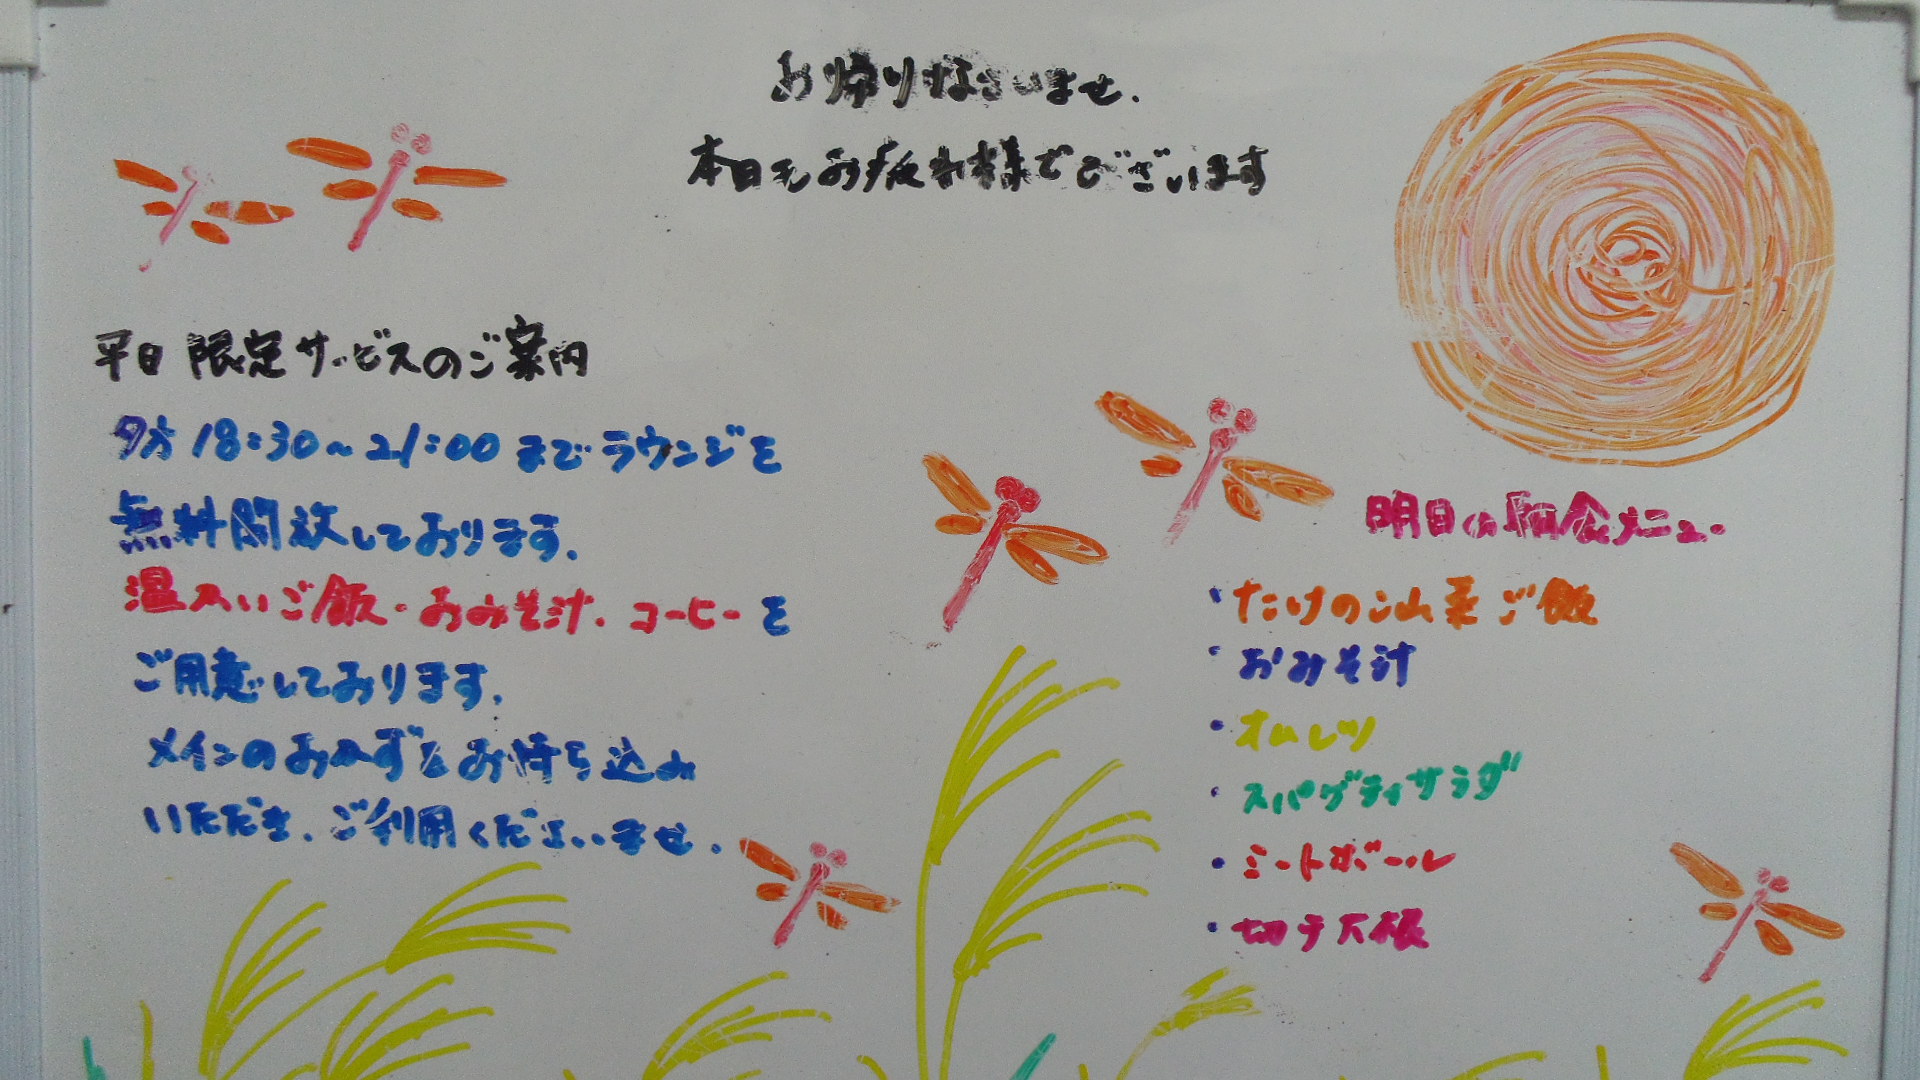 お帰りなさいませ.
本日もお疲れ様でございます
平日限定サービスのご案内
夕方18:30~21:00までラウンジを
無料開放しております.
温かいご飯・おみそ汁.コーヒーを
ご用意しております.
メインのおかずをお持ち込み
いただき.ご利用くださいませ.
明日の朝食メニュー
・たけのこ山菜ご飯
・おみそ汁
・オムレツ
・スパゲティサラダ
・ミートボール
・切干大根